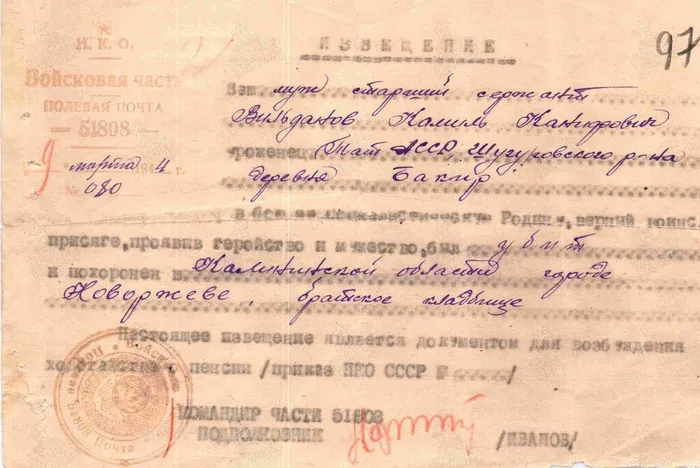 97
ИЗВЕЩЕНИЕ
Н.К.О.
Войсковая часть
ПОЛЕВАЯ ПОЧТА
— 51808 —
9 марта 1944 г.
№ 080
Ваш муж старший сержант
Вильданов Калиль Каюмович
уроженец Тат АССР, Шугуровского р-на
деревня Бакир
в бою за социалистическую Родину, верный воинс
присяге, проявив геройство и мужество, был убит
и похоронен в Калининской области городе
Новоржеве, братское кладбище
Настоящее извещение является документом для возбуждения
ходатайства о пенсии /приказ НКО СССР №
КОМАНДИР ЧАСТИ 51808
ПОДПОЛКОВНИК /ИВАНОВ/